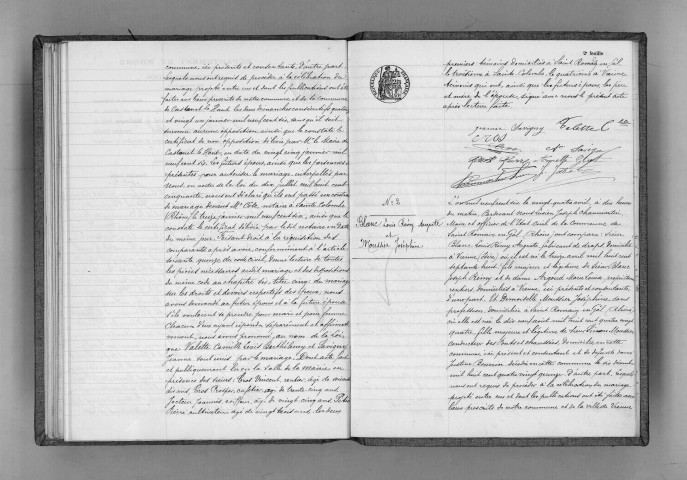 commune, ici présents et consentants, d'autre part
lesquels nous ont requis de procéder à la célébration du
mariage projeté entre eux et dont les publications ont été
faites aux lieux prescrits de notre commune et de la commune
de Castanet le Haut les deux dimanches consécutifs quatorze
et vingt un janvier mil neuf cent dix, sans qu'il soit
survenu aucune opposition ainsi que le constate le
certificat de non opposition délivré par Mr le Maire de
Castanet le Haut, en date du vingt cinq janvier mil
neuf cent dix. Les futurs époux, ainsi que les personnes
présentes pour autoriser le mariage interpellés par
Nous en vertu de la loi du dix juillet mil huit cent
cinquante, nous ont déclaré qu'ils ont passé un contrat
de mariage devant Me Côte, notaire à Sainte Colombe
(Rhône) le treize janvier mil neuf cent dix, ainsi que le
constate le certificat délivré par ledit notaire en date
du même jour. Faisant droit à la réquisition des
comparants après avoir, conformément à l'article
soixante quinze du code civil, donné lecture de toutes
les pièces nécessaires audit mariage et des dispositions
du même code au chapitre six, titre cinq du mariage
sur les droits et devoirs respectifs des époux, nous
avons demandé au futur époux et à la future épouse
s'ils voulaient se prendre pour mari et pour femme
Chacun d'eux ayant répondu séparément et affirmati-
vement, nous avons prononcé au nom de la Loi
que Valette Camille Louis Barthélemy et Savigny
Jeanne sont unis par le mariage. Dont acte fait
et publiquement lu en la salle de la mairie en
présence des sieurs: Cros Vincent, rentier, âgé de
dix ans, Cros Prosper, âgé de trente cinq ans
Joannès, coiffeur, âgé de vingt cinq ans,
Pierre cultivateur âgé de vingt trois ans, les deux
2e feuille
premiers témoins domiciliés à Saint Romain en Gal
le troisième à Sainte Colombe, le quatrième à Vienne
témoins qui ont, ainsi que les futurs époux, les père
et mère de l'épouse signé avec nous le présent acte
après lecture faite.
Jeanne Savigny Valette C
CROS
N° 2
Blanc Louis Rémy Auguste
et
Moussier Joséphine
L'an mil neuf cent dix le vingt quatre avril, à dix heures
du matin, Pardevant nous Joseph Chaumartin
Maire et officier de l'Etat civil de la Commune de
Saint Romain en Gal, Rhône, ont comparu: Sieur
Blanc Louis Rémy Auguste, fabricant de draps, domicilié
à Vienne (Isère) où il est né le vingt avril mil huit cent
septante huit, fils majeur et légitime de sieur Blanc
Joseph Rémy et de dame Argoud Marie Louise
rentiers domiciliés à Vienne, ici présents et consentants
d'une part. Et Demoiselle Moussier Joséphine, sans
profession, domiciliée à Saint Romain en Gal, Rhône,
où elle est née le dix neuf août mil huit cent quatre vingt
quatre, fille majeure et légitime de sieur Moussier
conducteur des Ponts et chaussées, domicilié en cette
commune, ici présent et consentant et de défunte dame
décédée en cette commune le dix
mil huit cent quatre vingt quinze d'autre part, lesquels
nous ont requis de procéder à la célébration du mariage
projeté entre eux et dont les publications ont été faites aux
lieux prescrits de notre commune et de la ville de Vienne